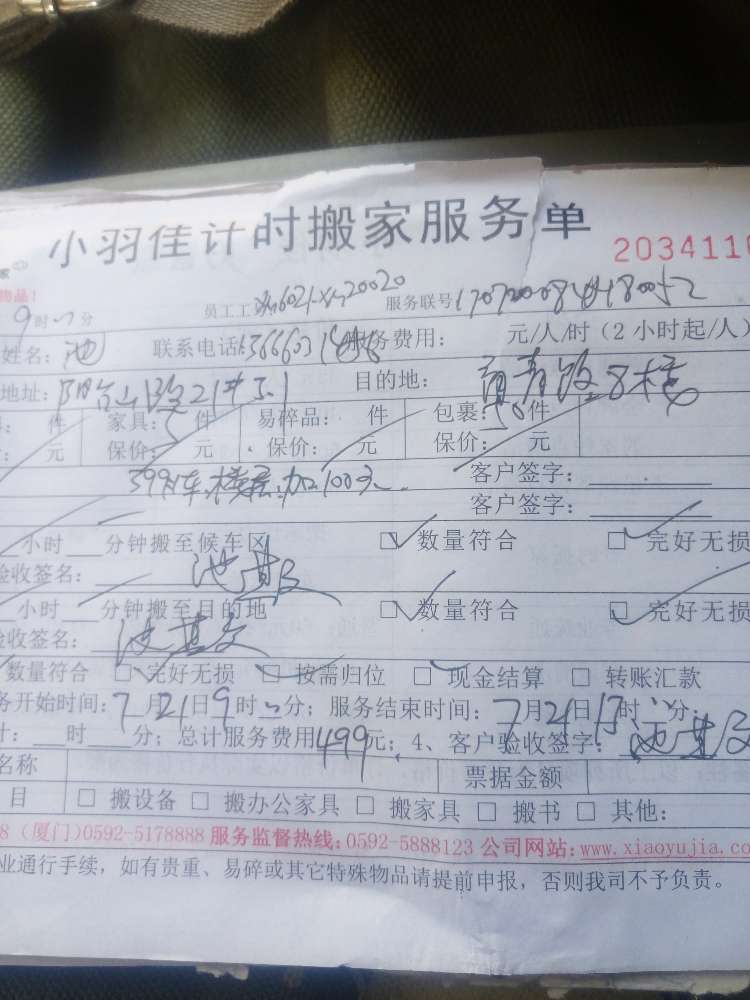 小羽佳计时搬家服务单
2034116
物品!
员工工 服务联号:
9时 分
姓名:池 联系电话: 务费用: 元/人/时(2小时起/人)
地址:阳台山路21# 目的地: 8楼
: 件 家具:5件 易碎品: 件 包裹:50件
元 保价: 元 保价: 元 保价: 元
399/车.楼层加100元. 客户签字:
客户签字:
小时 分钟搬至候车区 □ 数量符合 □ 完好无损
验收签名:池
小时 分钟搬至目的地 □ 数量符合 □ 完好无损
验收签名:池
数量符合 □ 完好无损 □ 按需归位 □ 现金结算 □ 转账汇款
务开始时间:7月21日9时 分;服务结束时间:7月21日 时 分;
计: 时 分;总计服务费用499元;4、客户验收签字:池
名称 票据金额
目 □ 搬设备 □ 搬办公家具 □ 搬家具 □ 搬书 □ 其他:
8(厦门)0592-5178888 服务监督热线:0592-5888123 公司网站:www.xiaoyujia.co
业通行手续,如有贵重、易碎或其它特殊物品请提前申报,否则我司不予负责。